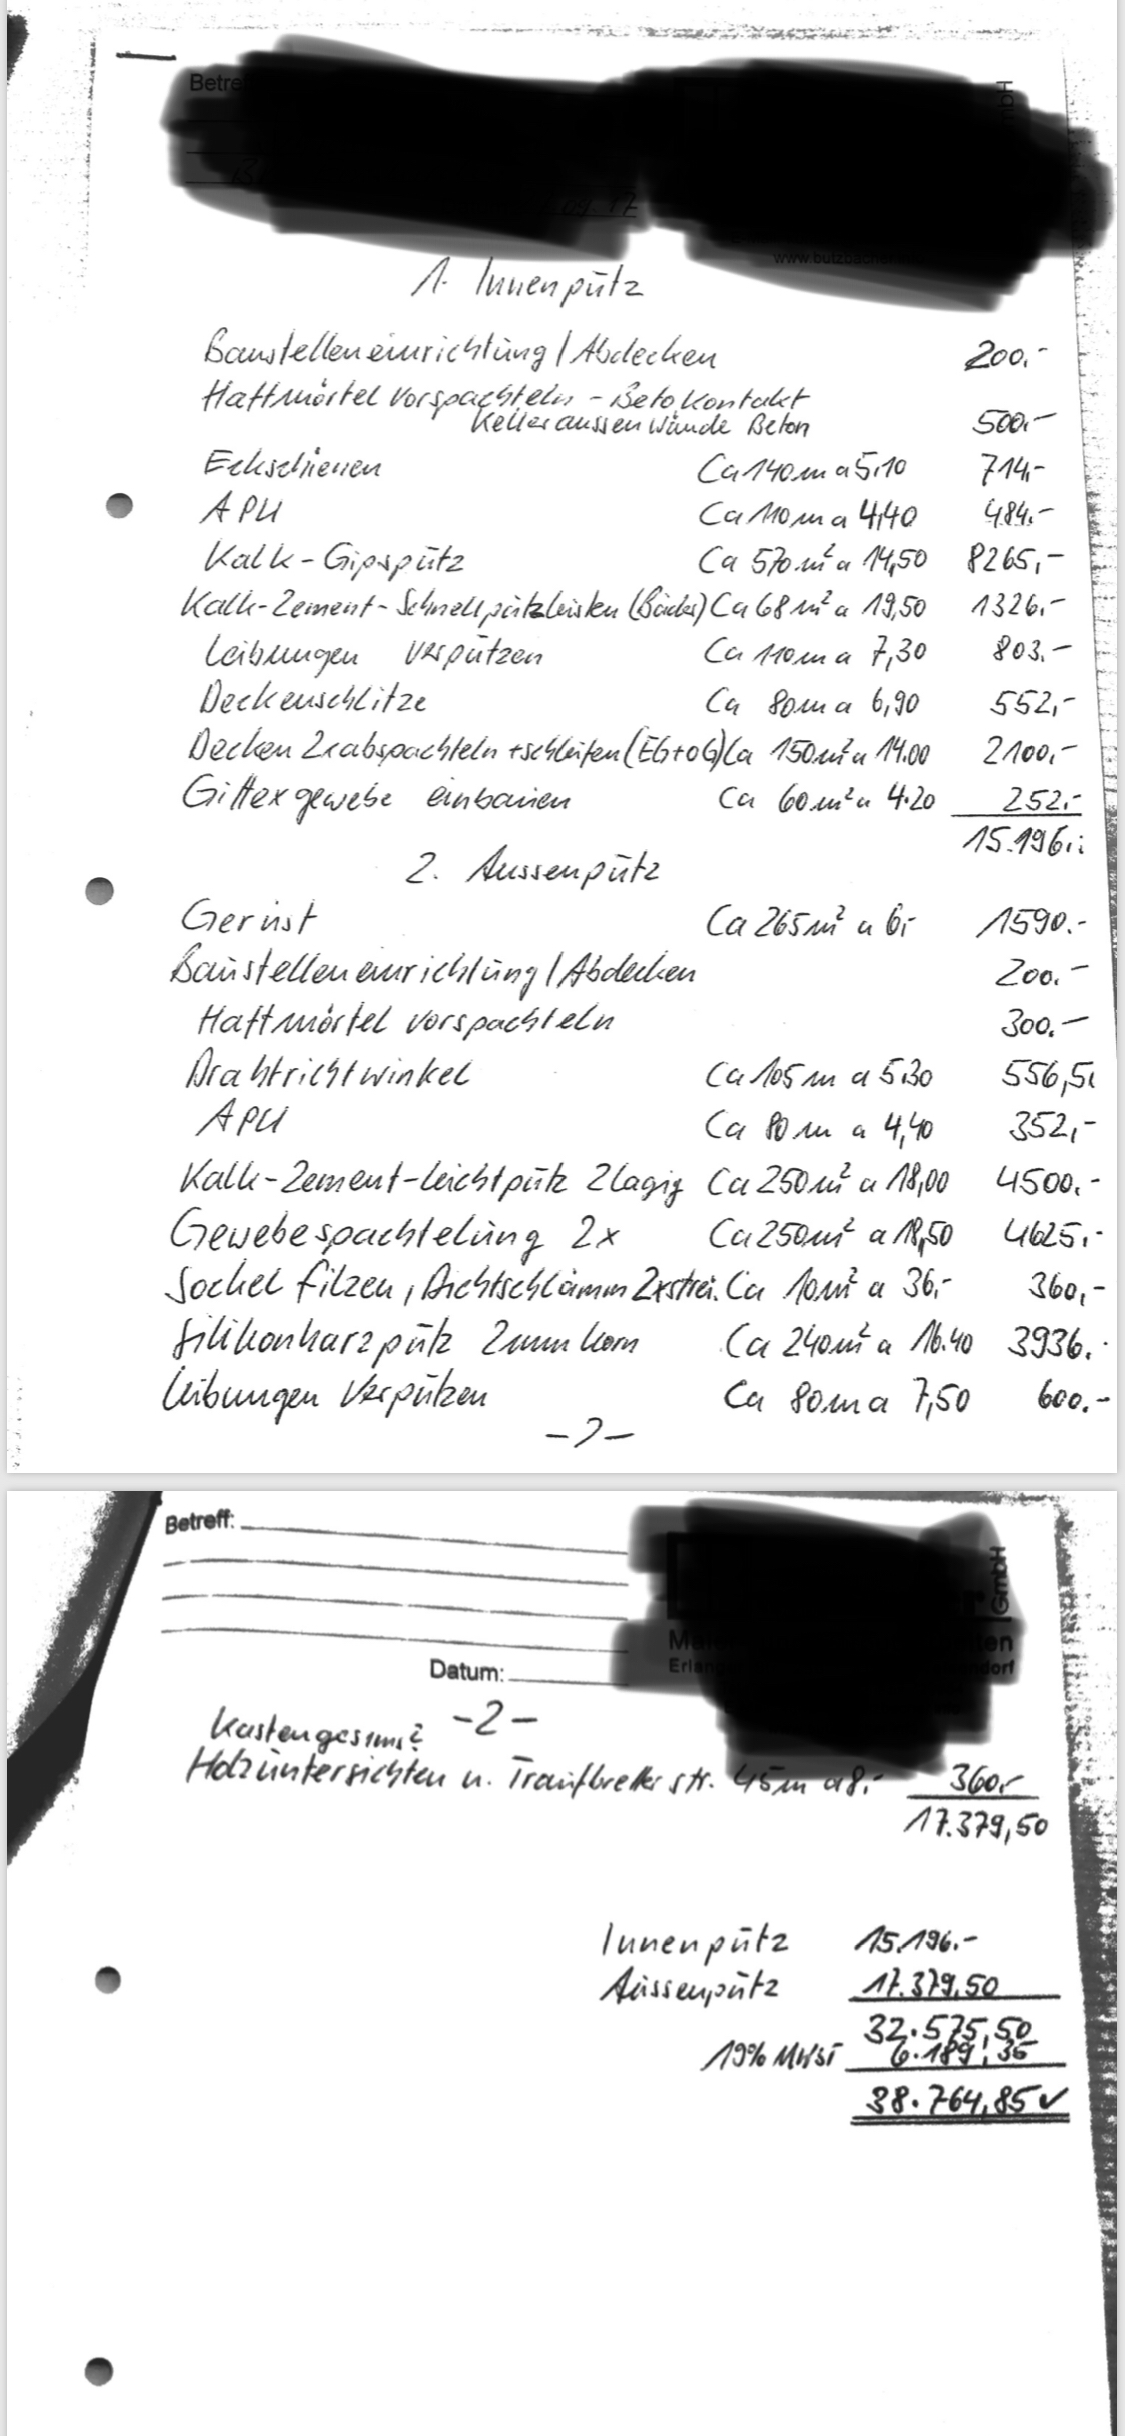 Betre
09.17
www.butzbacher
1. Innenputz
Baustelleneinrichtung/Abdecken 200.-
Haftmörtel vorspachteln - Betokontakt
Kelleraussenwände Beton 500.-
Eckschienen Ca 140m a 5,10 714,-
APU Ca 110m a 4,40 484.-
Kalk-Gipsputz Ca 570m² a 14,50 8265,-
Kalk-Zement-Schnellputzleisten (Bäder) Ca 68m² a 19,50 1326.-
Leibungen verputzen Ca 110m a 7,30 803.-
Deckenschlitze Ca 80m a 6,90 552,-
Decken 2x abspachteln + schleifen (EG+OG) Ca 150m² a 14.00 2100,-
Gittexgewebe einbauen Ca 60m² a 4.20 252.-
15.196,-
2. Aussenputz
Gerüst Ca 265m² a 6,- 1590.-
Baustelleneinrichtung/Abdecken 200.-
Haftmörtel vorspachteln 300.-
Drahtrichtwinkel Ca 105m a 5.30 556,5
APU Ca 80m a 4,40 352,-
Kalk-Zement-Leichtputz 2lagig Ca 250m² a 18,00 4500.-
Gewebespachtelung 2x Ca 250m² a 18,50 4625.-
Sockel filzen, Dichtschlämm 2xstrei. Ca 10m² a 36,- 360,-
Silikonharzputz 2mm Korn Ca 240m² a 16.40 3936.-
Leibungen verputzen Ca 80m a 7,50 600.-
-2-
Betreff:
GmbH
Datum:
-2-
Kastengesims?
Holzuntersichten u. Traufbretter str. 45m a 8,- 360,-
17.379,50
Innenputz 15.196.-
Aussenputz 17.379,50
32.575,50
19% MWST 6.189,35
38.764,85 ✓